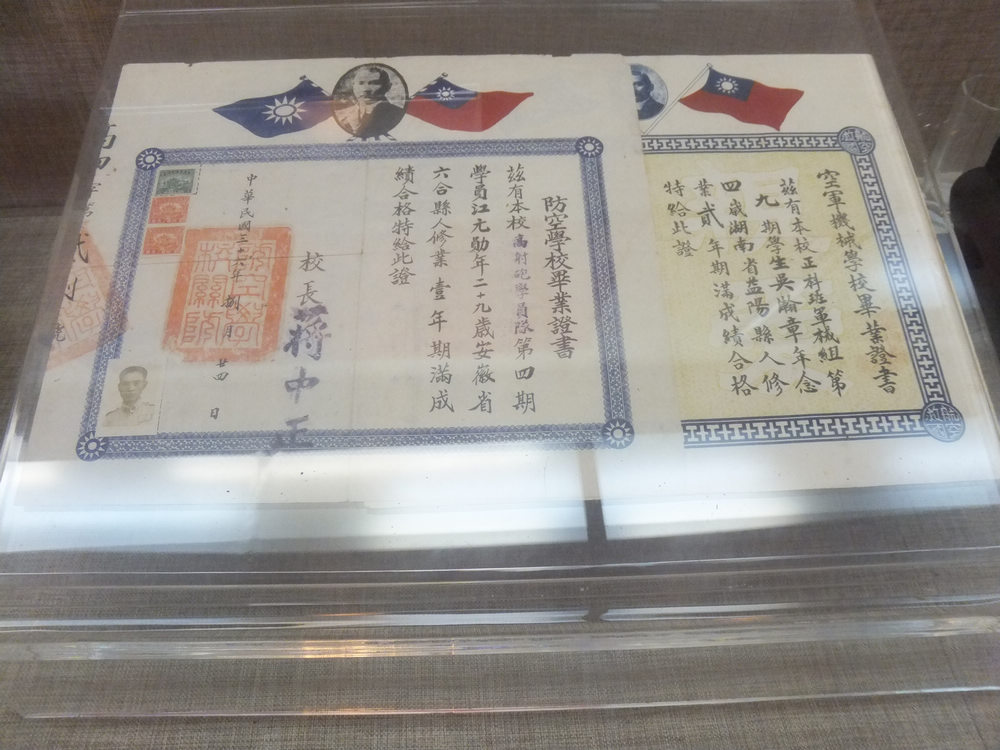 防空學校畢業證書
茲有本校高射砲學員隊第四期
學員江元勛年二十九歲安徽省
六合縣人修業壹年期滿成
績合格特給此證
校長蔣中正
中華民國三十六年捌月廿四日
空軍機械學校畢業證書
茲有本校正科班軍械組第
九期學生吳瀚章年念
四歲湖南省益陽縣人修
業貳年期滿成績合格
特給此證